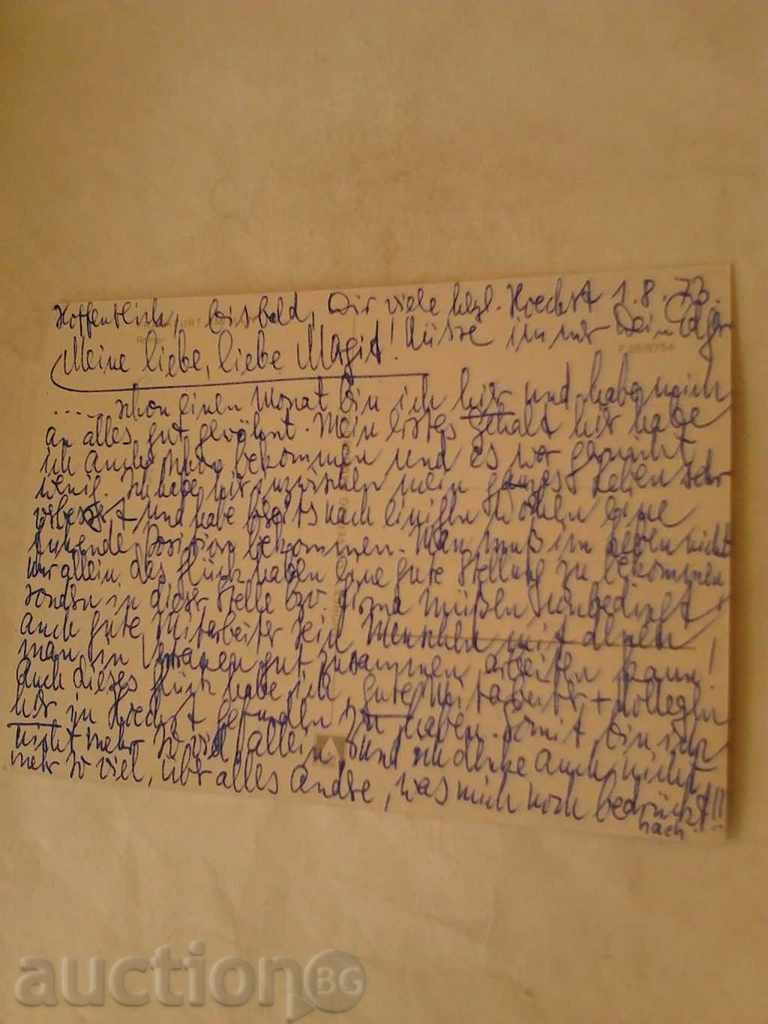 Hoffentlich, bis bald, Dir viele hzgl. Hoechst 1.8.73.
Meine liebe, liebe Magit! Küsse immer Dein
.... schon einen Monat bin ich hier und habe mich
an alles gut gewöhnt. Mein erstes Gehalt hier habe
ich auch schon bekommen und es war garnicht
wenig. Ich habe mir inzwischen mein ganzes Leben sehr
verbessert und habe bereits nach einigen Wochen eine
Position bekommen. Man muß im Leben nicht
nur allein das Glück haben eine gute Stellung zu bekommen
sondern in dieser Stelle bzw. Firma müßen unbedingt
auch gute Mitarbeiter sein Menschen mit denen
man im gut zusammen arbeiten kann!
Auch dieses Glück habe ich, gute Mitarbeiter + Kollegen
hier in Hoechst gefunden zu haben. Somit bin ich
nicht mehr so viel allein, und ich denke auch nicht
mehr so viel, über alles Andre, was mich noch bedrückt!!!
nach
auctionBG